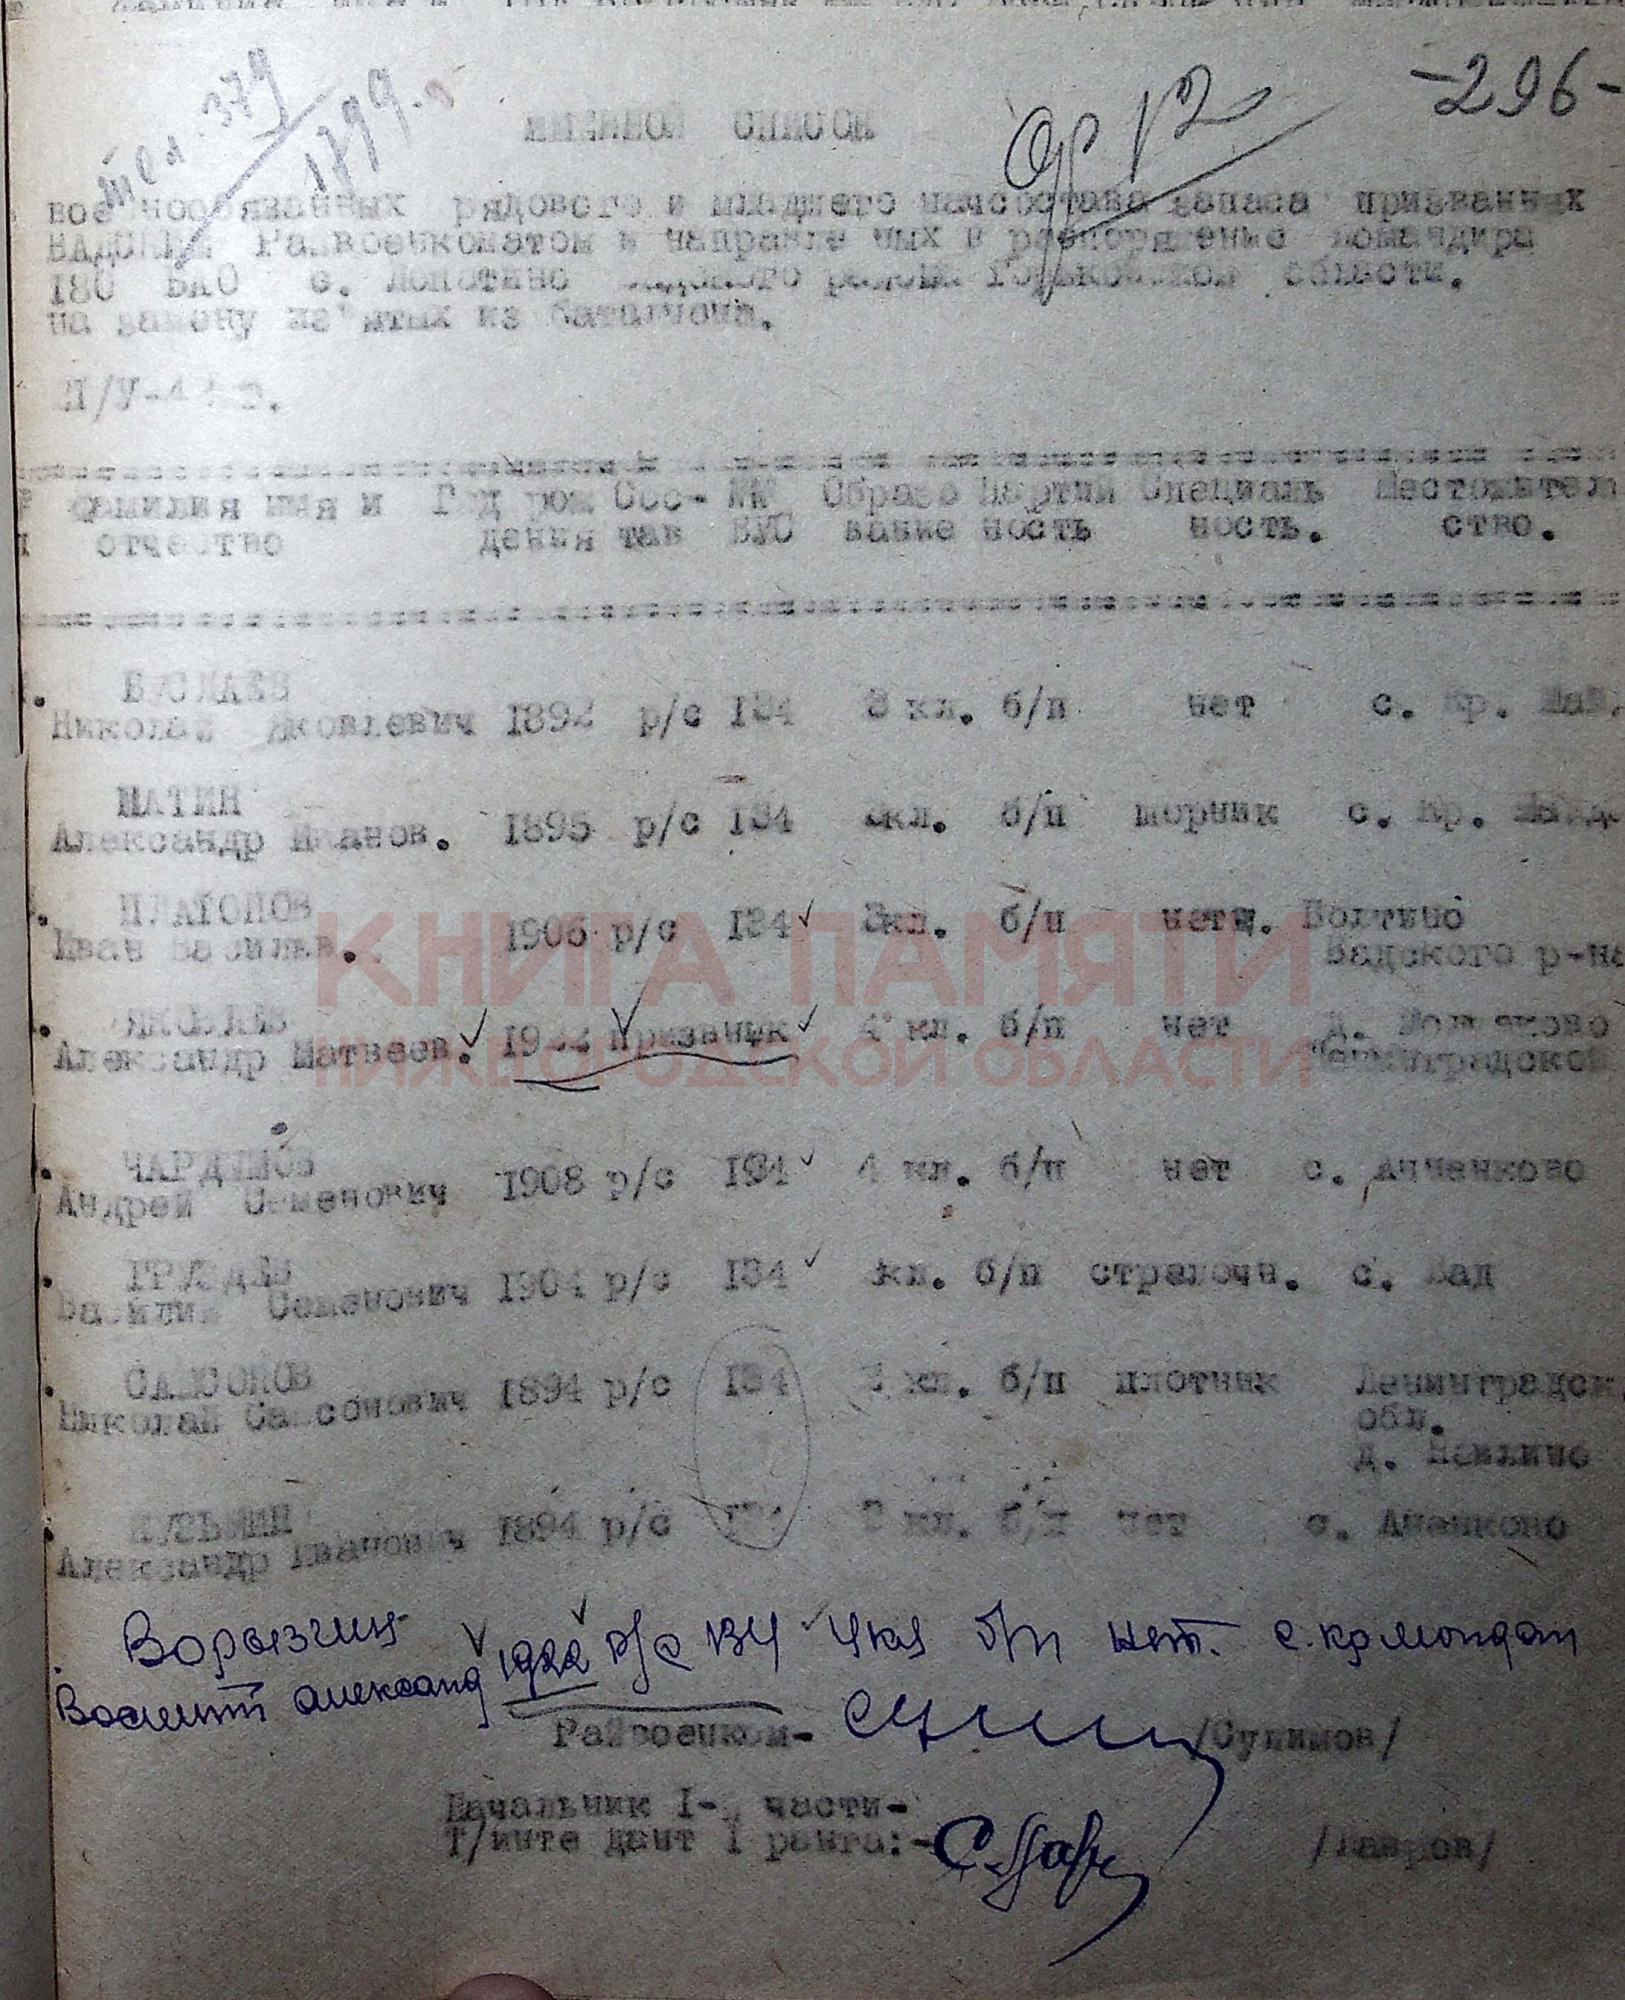 -296-
тел. 379
1799
ИМЕННОЙ СПИСОК
военнообязанных рядового и младшего начсостава запаса призванных
ВАДСКИМ Райвоенкоматом и направленных в распоряжение командира
180 БАО с. Лопатино Вадского района Горьковской области.
на замену из'ятых из батальона.
фамилия имя и Год рож Сос- №№ Образо Партий Специаль Местожитель
отчество дения тав ВУС вание ность ность. ство.
БУСЛАЕВ
Николай Яковлевич 1892 р/с 134 3 кл. б/п нет с. Кр. Май.
МАТИН
Александр Иванов. 1895 р/с 134 кл. б/п шорник с. Кр.
ПЛАТОНОВ
Иван Василья. 1906 р/с 134 3кл. б/п нет Вадского р-на
ЯКОВЛЕВ
Александр Матвеев. 1922 Призвник 4 кл. б/п нет д.
Ленинградской
ЧАРДЫМОВ
Андрей Семенович 1908 р/с 134 4 кл. б/п нет с.
ГРУЗДЕВ
Василий Семенович 1904 р/с 134 кл. б/п с. Вад
САМСОНОВ
Николай Самсонович 1894 р/с 134 3 кл. б/п плотник Ленинградск.
обл.
д.
КУЗЬМИН
Александр Иванович 1894 р/с 134 3 кл. б/п нет с. Ананково
Ворызгин
Александ 1922 р/с 134 4кл б/п нет. с.
Райвоенком- /Сулимов/
Начальник I-й части-
Т/интендант I ранга:- /Лавров/
КНИГА ПАМЯТИ
НИЖЕГОРОДСКОЙ ОБЛАСТИ